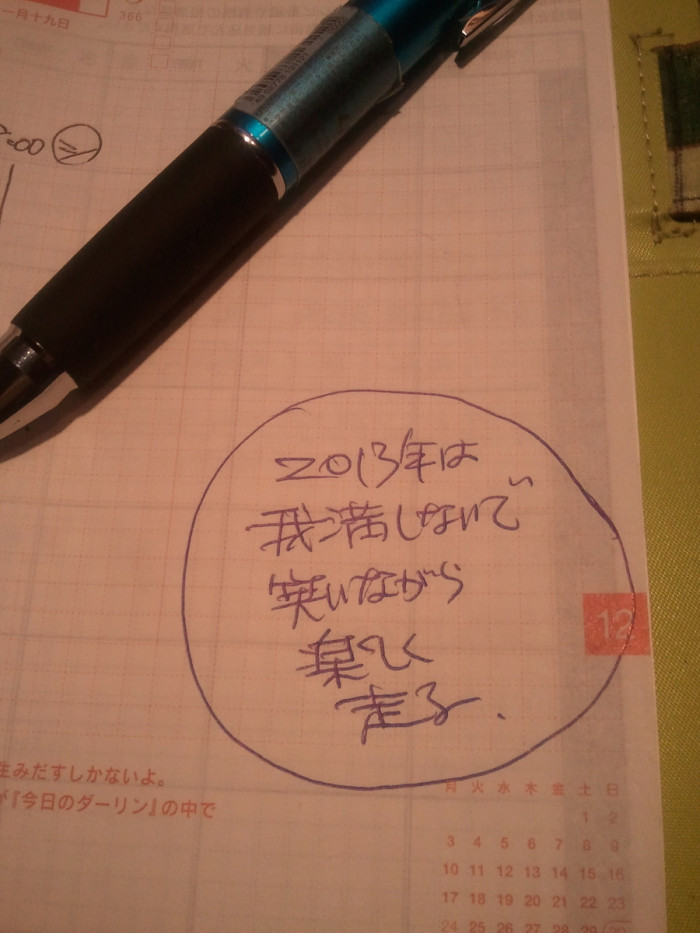 一月十九日
366
火
:00
2013年は
我満しないで
笑いながら
楽しく
走る.
12
生みだすしかないよ。
が『今日のダーリン』の中で
月 火 水 木 金 土 日
1 2
3 4 5 6 7 8 9
10 11 12 13 14 15 16
17 18 19 20 21 22 23
24 25 26 27 28 29 30